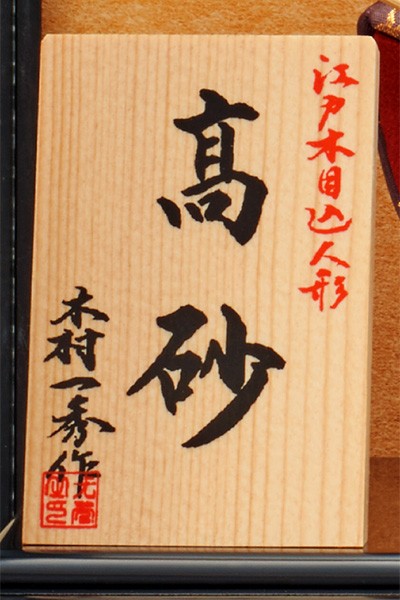 江戸木目込人形
髙砂
木村一秀作